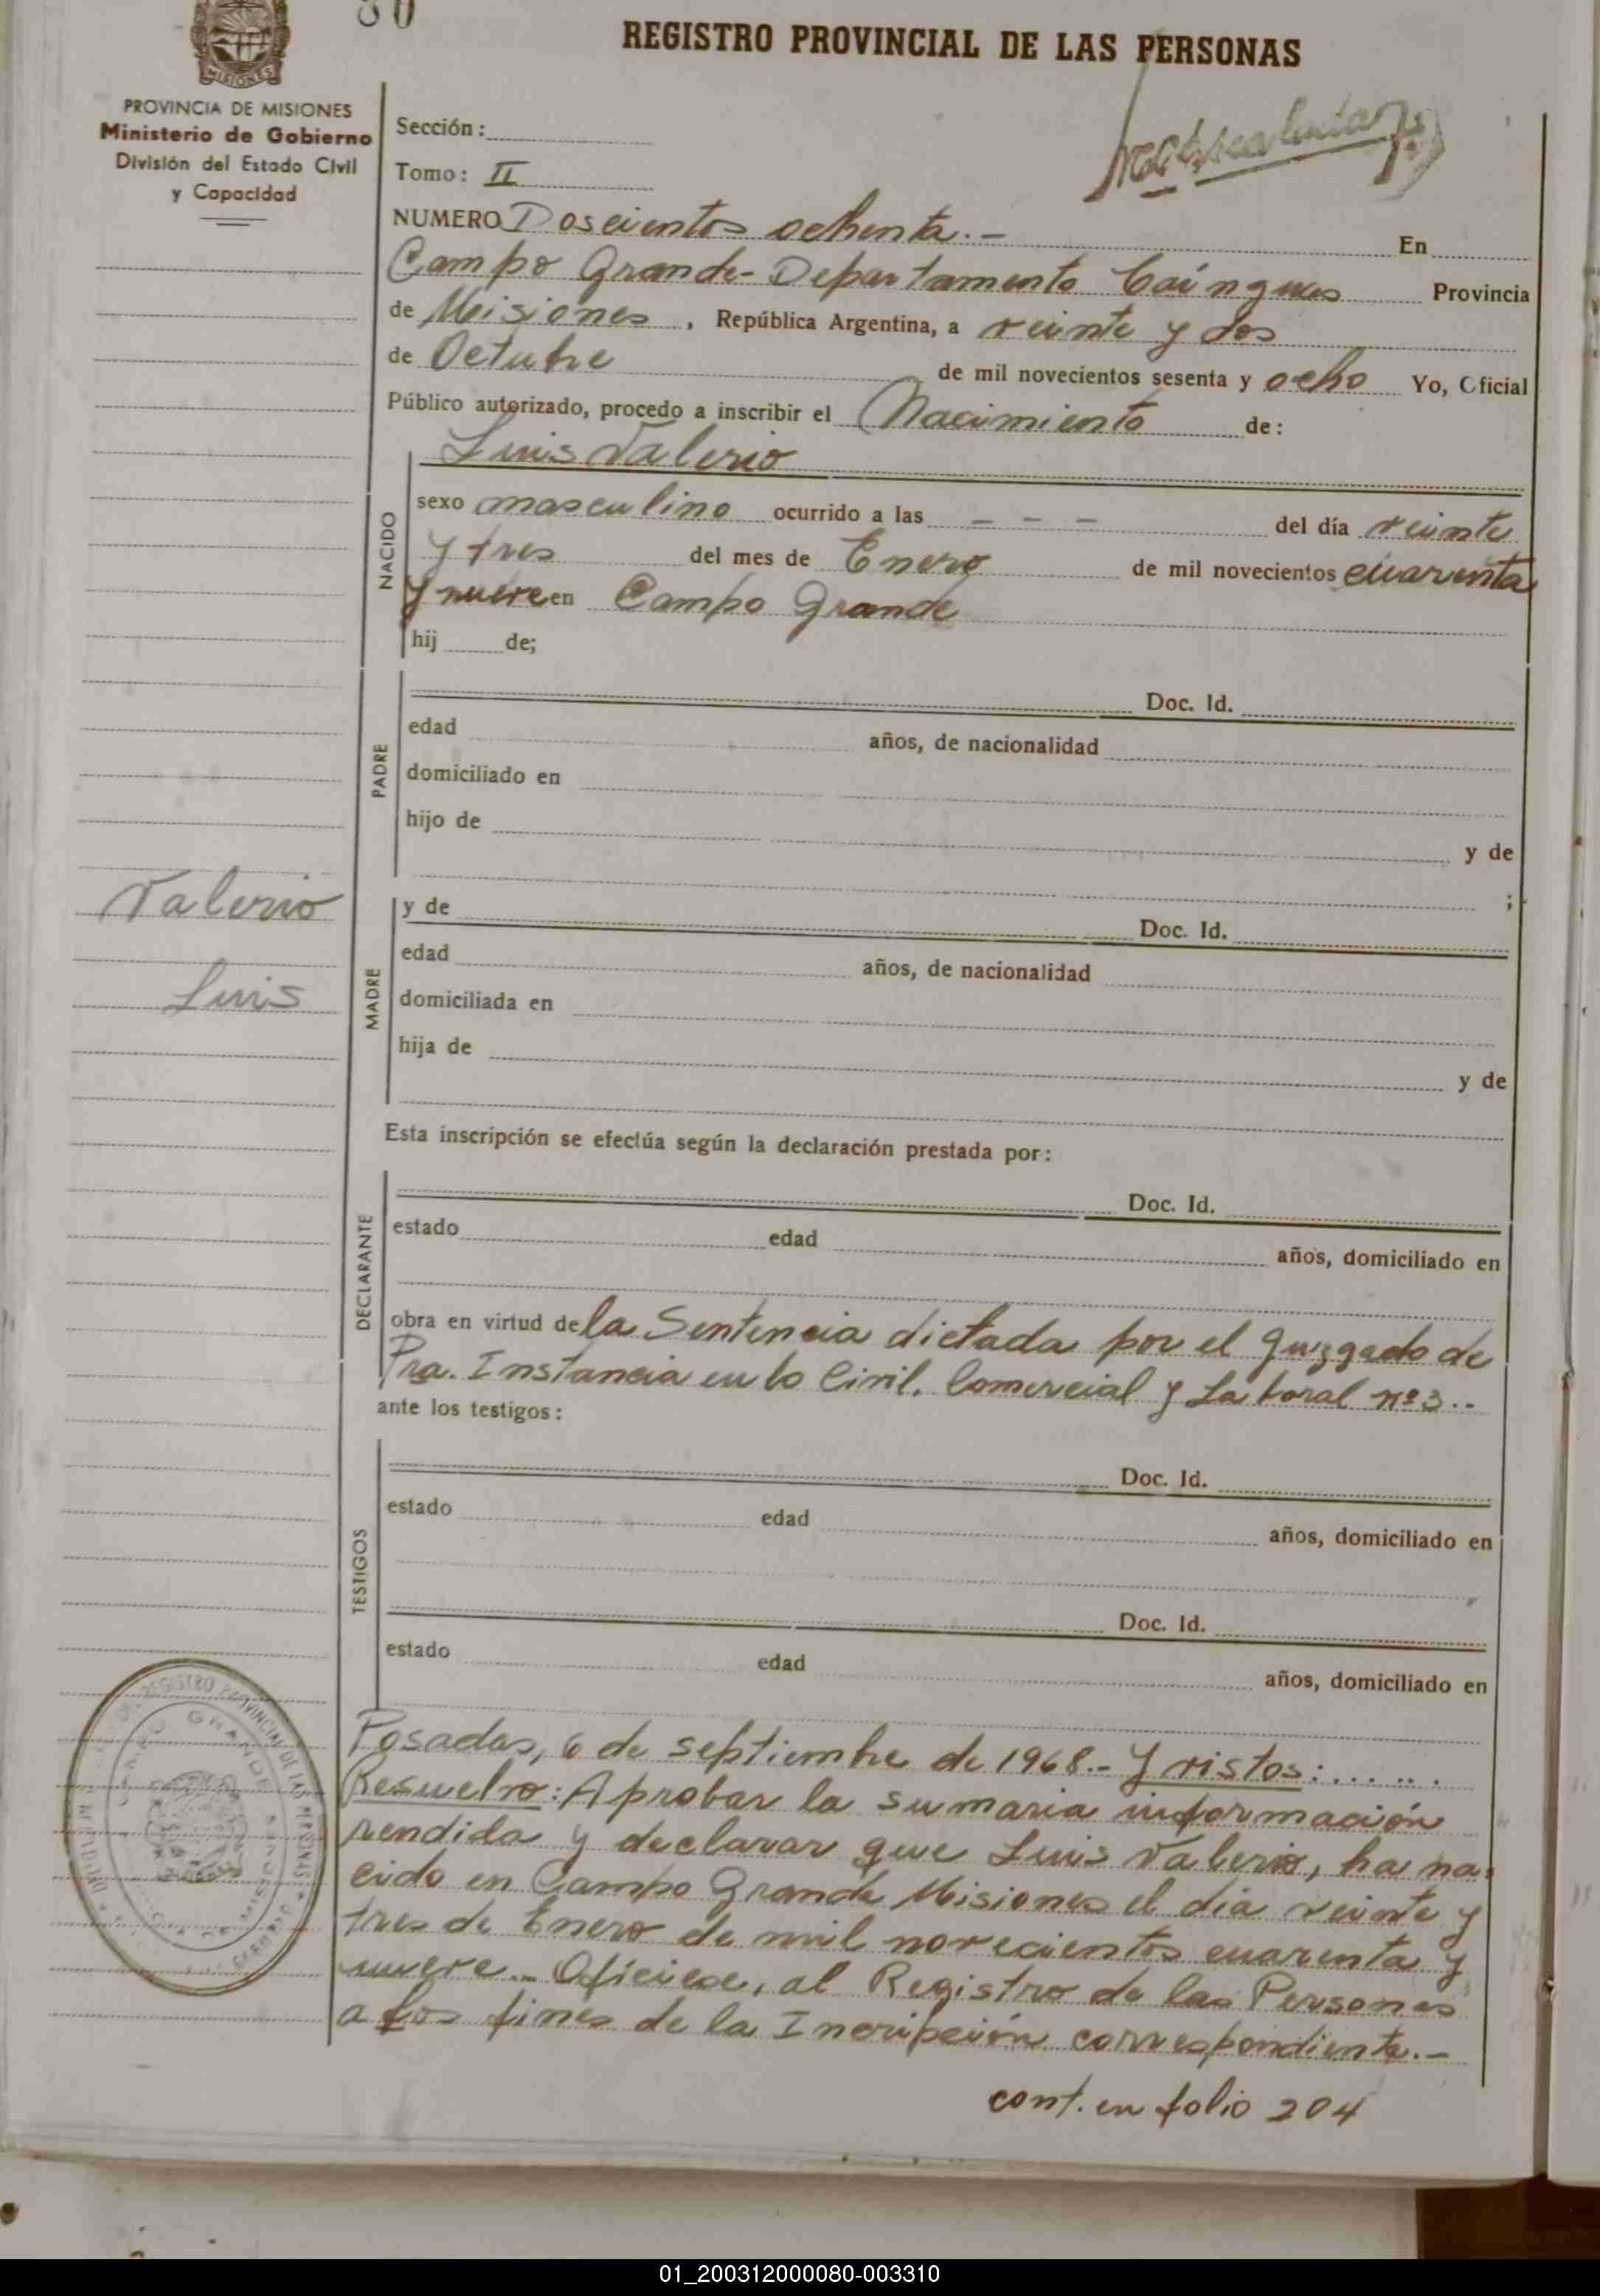 80
REGISTRO PROVINCIAL DE LAS PERSONAS
MISIONES
PROVINCIA DE MISIONES
Ministerio de Gobierno
División del Estado Civil
y Capacidad
Sección:
Tomo: II
NUMERO Doscientos ochenta.- En
Campo Grande - Departamento Caínguas Provincia
de Misiones, República Argentina, a veinte y dos
de Octubre de mil novecientos sesenta y ocho Yo, Oficial
Público autorizado, procedo a inscribir el Nacimiento de:
Luis Valerio
NACIDO
sexo masculino ocurrido a las - - - del día veinte
y tres del mes de Enero de mil novecientos cuarenta
y nueve en Campo Grande
hij de;
PADRE
Doc. Id.
edad años, de nacionalidad
domiciliado en
hijo de
y de
;
Valerio
Luis
MADRE
y de Doc. Id.
edad años, de nacionalidad
domiciliada en
hija de
y de
Esta inscripción se efectúa según la declaración prestada por:
DECLARANTE
Doc. Id.
estado edad años, domiciliado en
obra en virtud de la Sentencia dictada por el Juizgado de
Pra. Instancia en lo Civil, Comercial y Laboral nº 3..
ante los testigos:
TESTIGOS
Doc. Id.
estado edad años, domiciliado en
Doc. Id.
estado edad años, domiciliado en
Posadas, 6 de septiembre de 1968.- Y vistos:......
Resuelvo: Aprobar la sumaria información
rendida y declarar que Luis Valerio, ha na-
cido en Campo Grande Misiones el día veinte y
tres de Enero de mil novecientos cuarenta y
nueve.- Oficiese, al Registro de las Personas
a los fines de la Incripción correspondiente.-
cont. en folio 204
REGISTRO PROVINCIAL DE LAS PERSONAS
CAMPO GRANDE
01_200312000080-003310